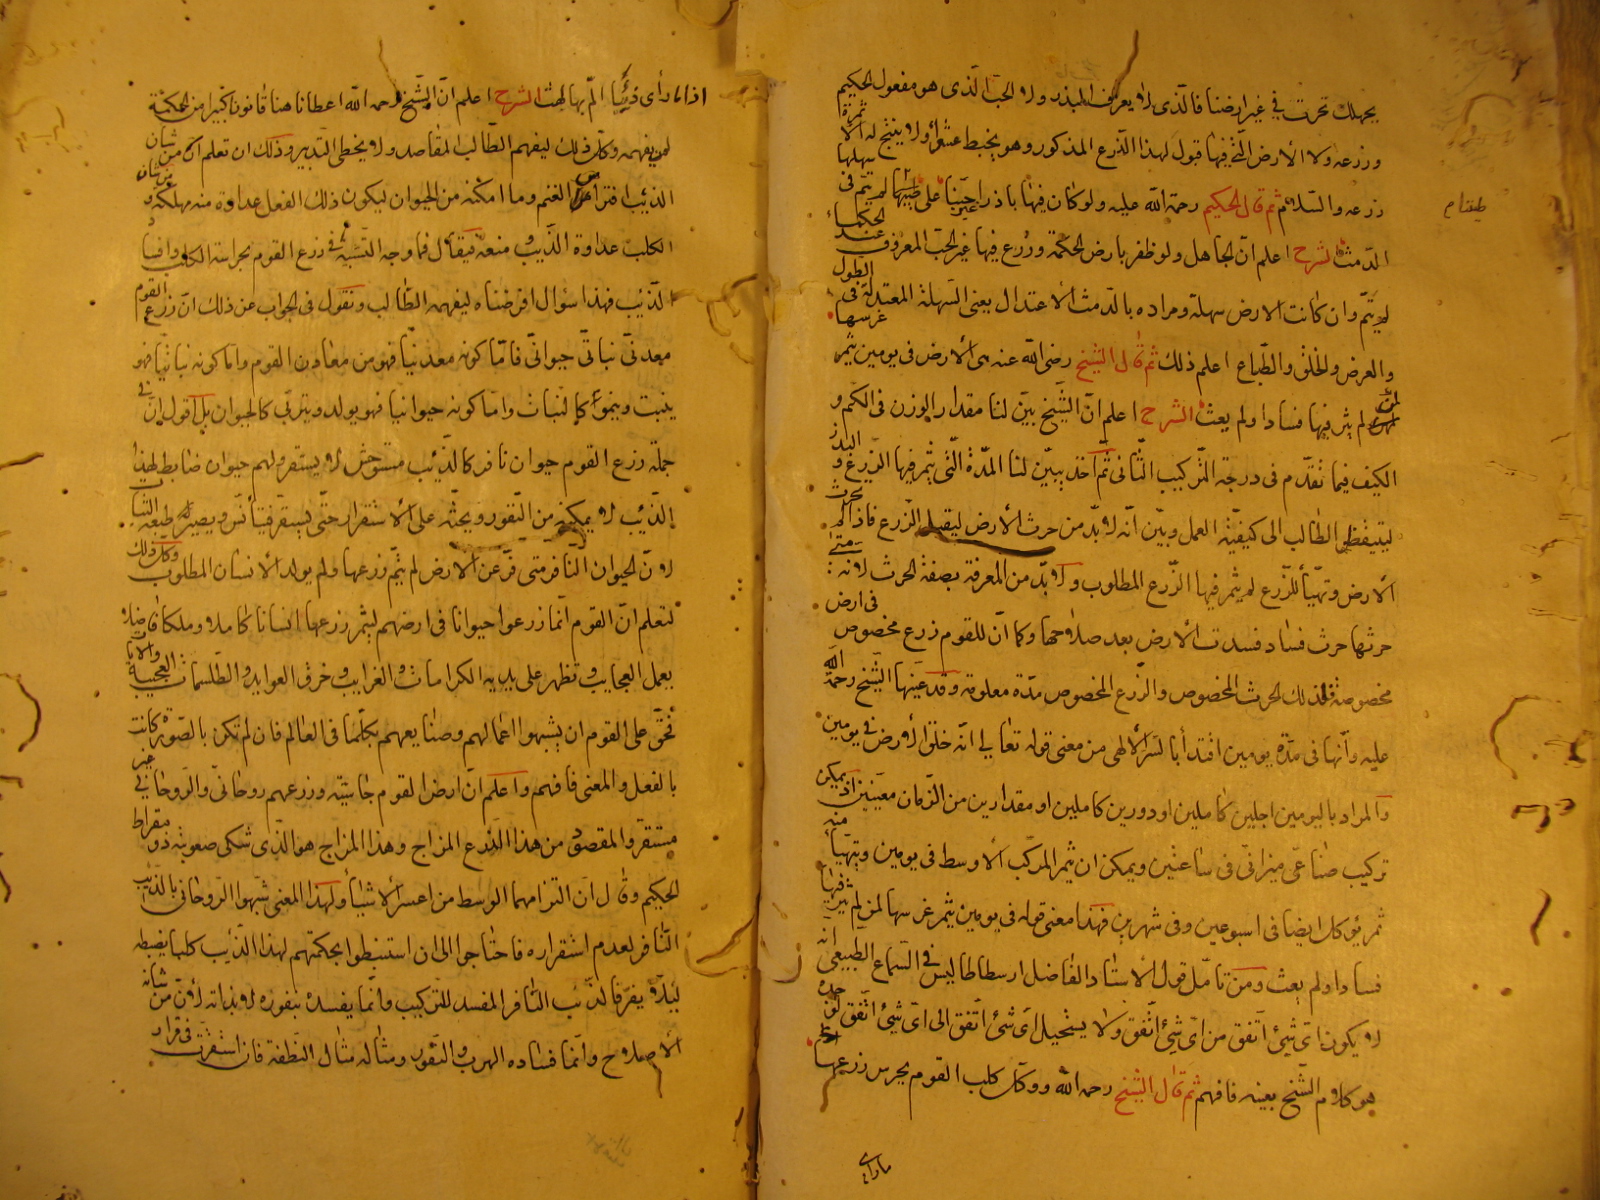 بجهلك تحرث في غير ارضنا فالذى لا يعرف المبذر ولا الحب الذى هو مفعول الحكيم
وزرعه ولا الارض التي فيها قبول لهذا الزرع المذكور وهو يخبط عشواء ولا ينتج له ثمرة الا
زرعه والسلام ثم قال الحكيم رحمة الله عليه ولو كان فيها باذرا حبنا على لم يتم في
الدمث الشرح اعلم ان الجاهل ولو ظفر بارض الحكمة وزرع فيها غير الحب المعروف عند الحكماء
لم يتم وان كانت الارض سهلة ومراده بالدمث الاعتدال يعنى السهلة المعتدلة في الطول
والعرض والخلق والطباع اعلم ذلك ثم قال الشيخ رضى الله عنه هى الارض في يومين يثمر غرسها
لمن لم يثر فيها فسادا ولم يعث الشرح اعلم ان الشيخ بين لنا مقدار الوزن في الكم و
الكيف فيما تقدم في درجة التركيب الثانى ثم اخذ يبين لنا المدة التى يثمر فيها الزرع و البذر
ليتيقظ الطالب الى كيفية العمل وبين انه لا بد من حرث الارض ليقبل الزرع فاذا لم تحرث
الارض وتهيأ للزرع لم يثمر فيها الزرع المطلوب ولا بد من المعرفة بصفة الحرث لانه متى
حرثها حرث فساد فسدت الارض بعد صلاحها وكما ان للقوم زرع مخصوص في ارض
مخصوصة فكذلك الحرث المخصوص والزرع المخصوص مدة معلومة وقد عينها الشيخ رحمة الله
عليه وانها في مدة يومين اقتدأ بالسر الالهى من معنى قوله تعالى انه خلق الارض في يومين
والمراد باليومين اجلين كاملين او دورين كاملين او مقدارين من الزمان معينين اذ يمكن
تركيب صناعى ميزانى في ساعتين ويمكن ان يثمر المركب الاوسط في يومين ويتهيأ منه
ثمر يؤكل ايضا في اسبوعين وفى شهرين فهذا معنى قوله في يومين يثمر غرسها لمن لم يثر فيها
فسادا ولم يعث ومن تامل قول الاستاد الفاضل ارسطاطاليس في السماع الطبيعى انه
لا يكون اى شئ اتفق من اى شئ اتفق ولا يستحيل اى شئ اتفق الى اى شئ اتفق
هو كلام الشيخ بعينه فافهم ثم قال الشيخ رحمه الله ووكل كلب القوم يحرس زرعها
طيقام
ماراى
اذا ما رأى ذئبا الم بها لهث الشرح اعلم ان الشيخ رحمه الله اعطانا هنا قانونا كبيرا من الحكمة
لمن يفهمه وكل ذلك ليفهم الطالب المقاصد ولا يخطى التدبير وذلك ان تعلم ان من شان
الذئب افتراس الغنم وما امكنه من الحيوان ليكون ذلك الفعل عداوة منه مهلكة و من شان
الكلب عداوة الذيب و منعه فيقال فما وجه التشبه في زرع القوم بحراسة الكلب وافساد
الذئب فهذا سؤال افرضناه ليفهمه الطالب ونقول في الجواب عن ذلك ان زرع القوم
معدنى نباتى حيوانى فاما كونه معدنيا فهو من معادن القوم واما كونه نباتيا فهو
ينبت وينمو كالنبات واما كونه حيوانيا فهو يولد ويتربى كالحيوان بل اقول ان في
جملة زرع القوم حيوان نافر كالذئب متوحش لا يستقر ولهم حيوان ضابط لهذا
الذئب لا يمكنه من النفور ويحثه على الاستقرار حتى يستقر فيتأنس ويصير له طبعه
لان الحيوان النافر متى فر عن الارض لم يتم زرعها ولم يولد الانسان المطلوب وكل ذلك
لتعلم ان القوم انما زرعوا حيوانا في ارضهم ليثمر زرعها انسانا كاملا وملكا فاضلا
يعمل العجايب وتظهر على يديه الكرامات و الغرايب و خرق العوايد والطلسمات العجيبة
فحق على القوم ان يشبهوا اعمالهم وصنايعهم بكلما في العالم فان لم تكن بالصورة كانت
بالفعل والمعنى فافهم واعلم ان ارض القوم جاسية وزرعهم روحانى والروحانى غير
مستقر والمقصود من هذا الزرع المزاج وهذا المزاج هو الذى شكى صعوبته ذو مقراط
الحكيم وقال ان التزامهما الوسط من اعسر الاشياء ولهذا المعنى شبهوا الروحانى بالذئب
النافر لعدم استقراره فاحتاجوا الى ان استنبطوا بحكمتهم لهذا الذئب كلبا يضبطه
ليلا يفر فالذئب النافر المفسد للتركيب وانما يفسده بنفوره لا بذاته لان من شانه
الاصلاح وانما فساده الهرب و النفور ومثاله مثال النطفة فان استقرت في قرار